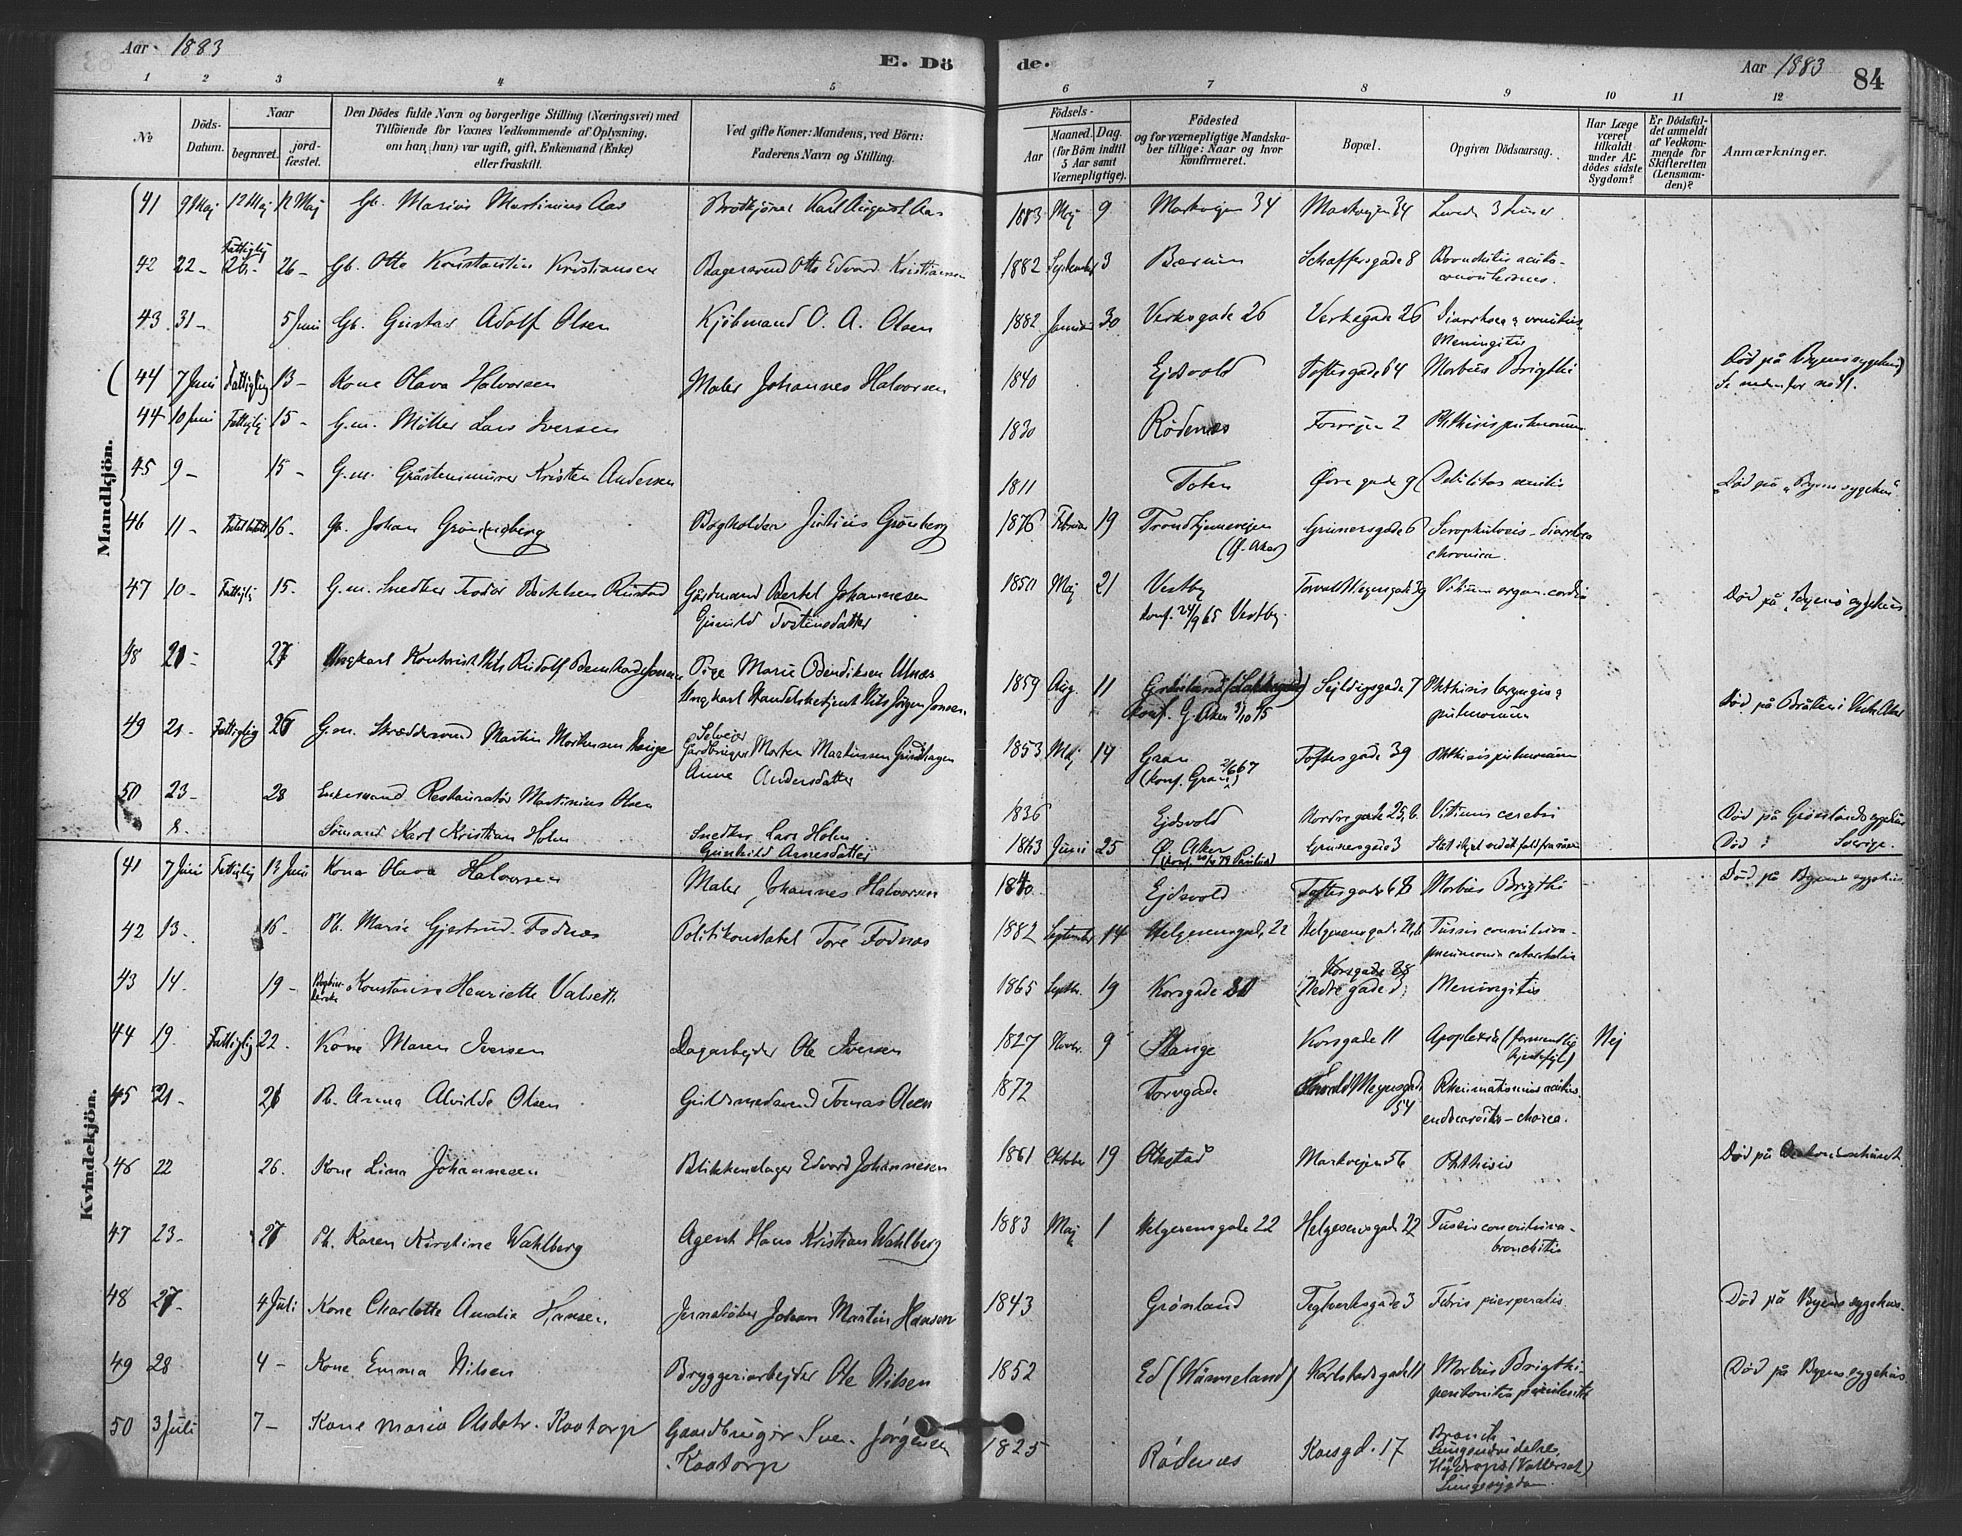 Aar 1883
E. Dö
de.
Aar 1883
84
1 2 3 4 5 6 7 8 9 10 11 12
No
Döds-
Datum.
Naar
begravet.
jord-
fæstet.
Den Dödes fulde Navn og borgerlige Stilling (Næringsvei) med
Tilföiende for Voxnes Vedkommende af Oplysning,
om han (hun) var ugift, gift, Enkemand (Enke)
eller fraskilt.
Ved gifte Koner: Mandens, ved Börn:
Faderens Navn og Stilling.
Födsels-
Aar
Maaned.
Dag.
(for Börn indtil
5 Aar samt
Værnepligtige).
Födested
og for værnepligtige Mandska-
ber tillige: Naar og hvor
konfirmeret.
Bopæl.
Opgiven Dödsaarsag.
Har Læge
været
tilkaldt
under Af-
dödes sidste
Sygdom?
Er Dödsfal-
det anmeldt
af Vedkom-
mende for
Skifteretten
(Lensman-
den)?
Anmærkninger.
Mandkjön.
41 9 Maj 12 Maj 12 Maj Gb. Marius Martinius Aas Karl August Aas 1883 Maj 9 Markvejen 34 Markvejen 34 Levede 3 timer
42 22 - Fattiglig 26 - 26 - Gb. Otto Konstantin Kristiansen Bagersvend Otto Edvard Kristiansen 1882 September 3 Bærum Schaffersgade 8 Bronkitis acuta-
43 31 - 5 Juni Gb. Gustav Adolf Olsen Kjöbmand O. A. Olsen 1882 Januar 30 Verksgade 26 Verksgade 26 Diarrhoea
Meningitis
(44 7 Juni Fattiglig 13 - Kone Olava Halvorsen Maler Johannes Halvorsen 1840 Ejdsvold Toftesgade 64 Morbus Brigthi Död på Byens sygehus)
Se nedenfor no 41.
44 10 Juni Fattiglig 15 - G.m. Möller Lars Iversen 1830 Rødenæs 2 Phthisis pulmonum
45 9 - 15 - G.m. Gråstensmurer Kristen Andersen 1811 Toten Øvre gade 9 Debilitas senilis „Död på „Byens sygehus"
46 11 - 16 - Gb. Johan Grön(ne)berg Bogholder Julius Grønberg 1876 Februar 19 Trondhjemsvejen
(Ø. Aker) Grünersgade 6 diarrhoea
chronica
47 10 - Fattiglig 15 - G.m. Snedker Teodor Bertelsen Rustad Gårdmand Bertel Johannesen
Gunild Tostensdatter 1850 Maj 21 Vestby
konf. 24/9 65 Vestby Torvald Meyersgade 39 Vitium organ. cordis Död på „Byens sygehus
48 21 - 27 Ungkarl Kontorist Nils Rudolf Bernhard Jonsen Pige Marie Bendiksen
Ungkarl Handelsbetjent Nils Jörgen Jonsen 1859 Aug. 11
Konf. G. Aker 3/10 75 Sejldugsgade 7 Phthisis laryngis &
pulmonum Död på Bråten i Vestre Aker
49 21 - Fattiglig 26 G.m. Skræddersvend Martin Mortensen Selvejer
Gårdbruger Morten Martinssen
Anne Andersdatter 1853 Maj 14 Gran
(Konf. Gran 2/6 67) Toftesgade 39 Phthisis pulmonum
50 23 - 28 Enkemand Restauratør Martinius Olsen 1836 Ejdsvold Nordregade 25, b. Vitium cerebri Död på Grönlands sygehus
2. Sömand Karl Kristian Holm Snedker Lars Holm
Gunhild Arnesdatter 1863 Juni 25 Ø. Aker Grünersgade 3 Død i Sverige.
Kvindekjön.
41 7 Juni Fattiglig 13 Juni Kone Olava Halvorsen Maler Johannes Halvorsen 1840. Ejdsvold Toftesgade 68 Morbus Brigthi Död på Byens sygehus
42 13 - 16 - Pb. Marie Gjertrud Fodnæs Politikonstabel Tore Fodnæs 1882 September 14 Helgesensgade 22 Helgesensgade 22, b. Tussis convulsiva-
pneumonia catarrhalis
43 14. 19 - Konstanse Henriette Valseth 1865 Septbr. 19 Korsgade Korsgade 28
(Nedre gade 3) Meningitis
44 19. Fattiglig 22. Kone Maren Iversen Dagarbejder Ole Iversen 1827 Novbr. 9 Stange Korsgade 11 Apopleksi (formentlig
hjertefejl) Nej
45 21 - 26 Pb. Anna Alvilde Olsen Guldsmedsvend Tomas Olsen 1872 Torvgade Torvald Meyersgade
54 Rheumatismus acutus
endocarditis - chorea.
46 22 26. Kone Lina Johannesen Blikkenslager Edvard Johannesen 1861 Oktober 19 Akstad Markvejen 56 Phthisis Död på Diakonissehuset.
47 23 - 27 Pb. Karen Kirstine Wahlberg Agent Hans Kristian Wahlberg 1883 Maj 1 Helgesensgade 22 Helgesensgade 22 Tussis convulsiva-
bronchitis
48 27 - 4 Juli Kone Charlotte Amalie Hansen Jernstöber Johan Martin Hansen 1843 Grönland Teglverksgade 3 Febris puerperalis Död på Byens sygehus.
49 28 4 - Kone Emma Nilsen Bryggeriarbejder Ole Nilsen 1852 Ed (Wärmeland) Karlstadsgade 11 Morbus Brigthi
peritonitis purulenta Död på Byens sygehus
50 3 Juli 7 - Kone Maria Olsdatr. Kootorp Gaardbruger Sven Jørgensen
Kootorp 1825 Rödenæs Korsgd. 17 Bronch
Hydrops (Vattersot)
Lungesygdom